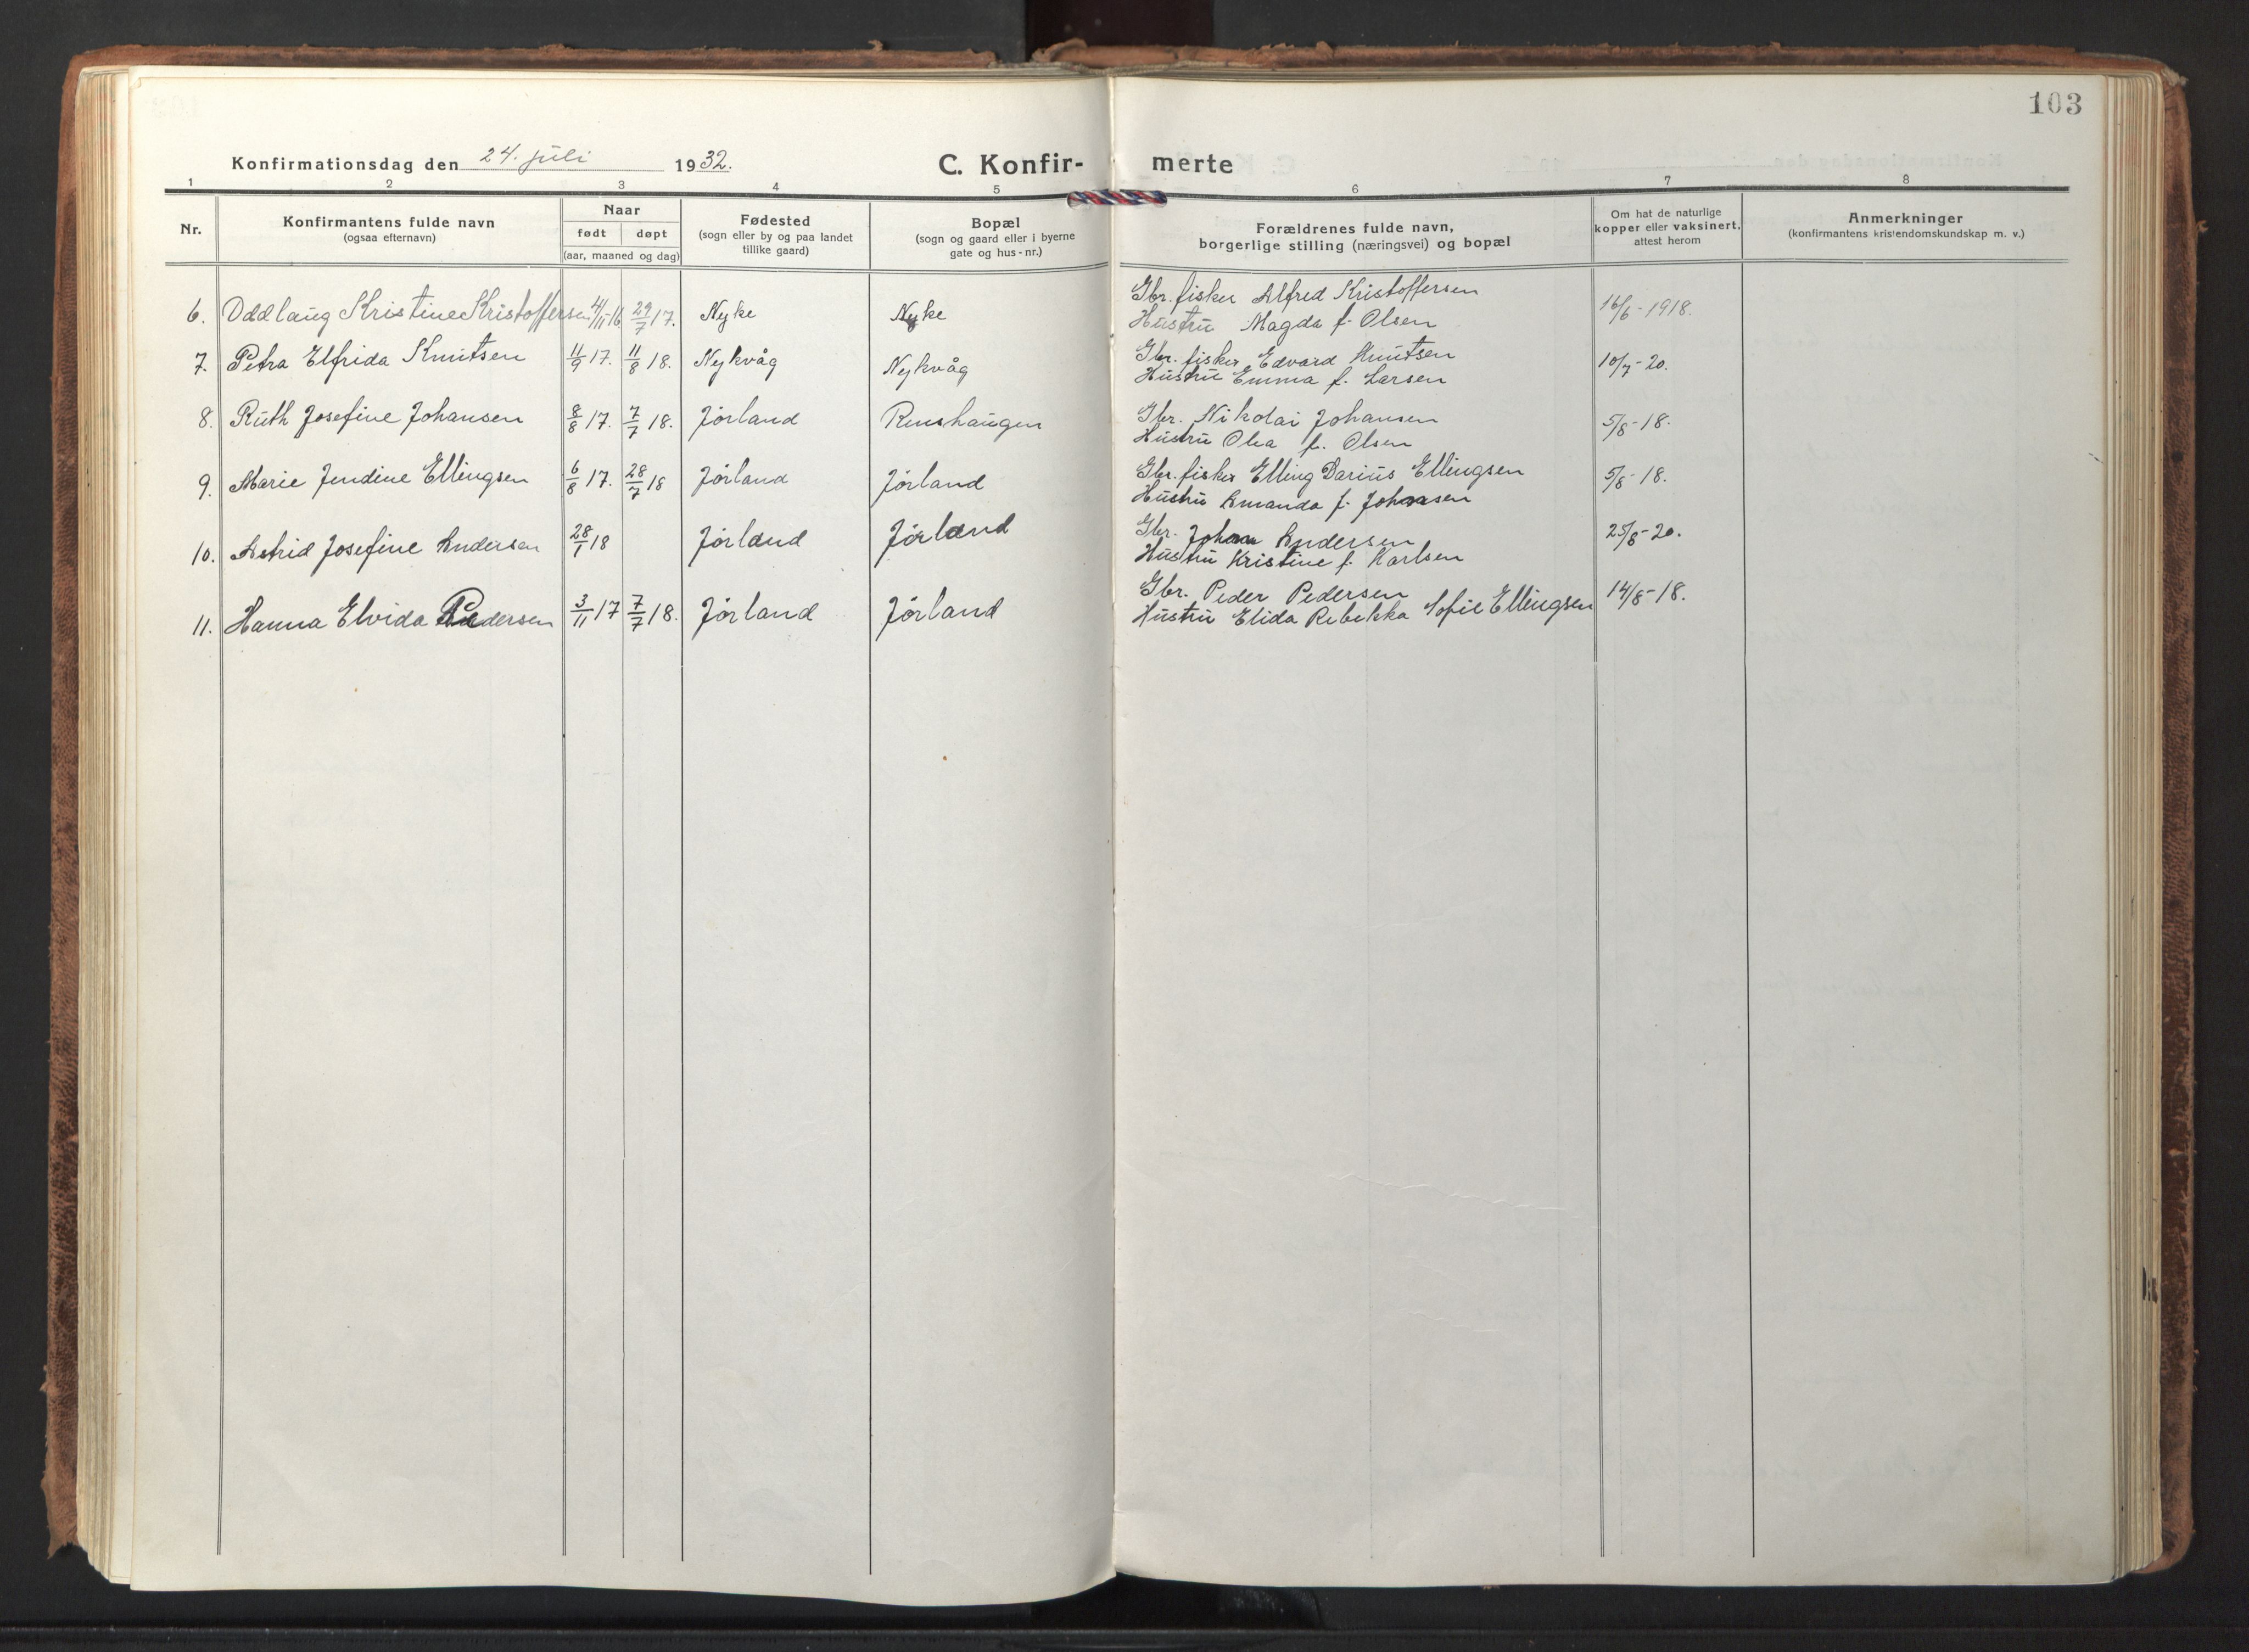 103
Konfirmationsdag den 24. juli 1932. C. Konfir- merte
1 2 3 4 5 6 7 8
Nr. Konfirmantens fulde navn (ogsaa efternavn) Naar født døpt (aar, maaned og dag) Fødested (sogn eller by og paa landet tillike gaard) Bopæl (sogn og gaard eller i byerne gate og hus-nr.) Forældrenes fulde navn, borgerlige stilling (næringsvei) og bopæl Om hat de naturlige kopper eller vaksinert, attest herom Anmerkninger (konfirmantens kristendomskundskap m. v.)
6. Oddlaug Kristine Kristoffersen 4/11-16 29/7 17. Nyke Nyke Gbr. fisker Alfred Kristoffersen 16/6-1918.
Hustru Magda f. Olsen
7. Petra Elfrida Knutsen 11/9 17. 11/8 18. Nykvåg Nykvåg Gbr. fisker Edvard Knutsen 10/7-20.
Hustru Emma f. Larsen
8. Ruth Josefine Johansen 8/8 17. 7/7 18. Jørland Renshaugen Gbr. Nikolai Johansen 5/8-18.
Hustru Olea f. Olsen
9. Marie Jendine Ellingsen 6/8 17. 28/7 18 Jørland Jørland Gbr. fisker Elling Darius Ellingsen 5/8-18.
Hustru Amanda f. Johansen
10. Astrid Josefine Andersen 28/1 18 Jørland Jørland Gbr. Johan Andersen 25/8-20.
Hustru Kristine f. Karlsen
11. Hanna Elvida Pedersen 3/11 17 7/7 18. Jørland Jørland Gbr. Peder Pedersen 14/8-18.
Hustru Elida Rebekka Sofie Ellingsen